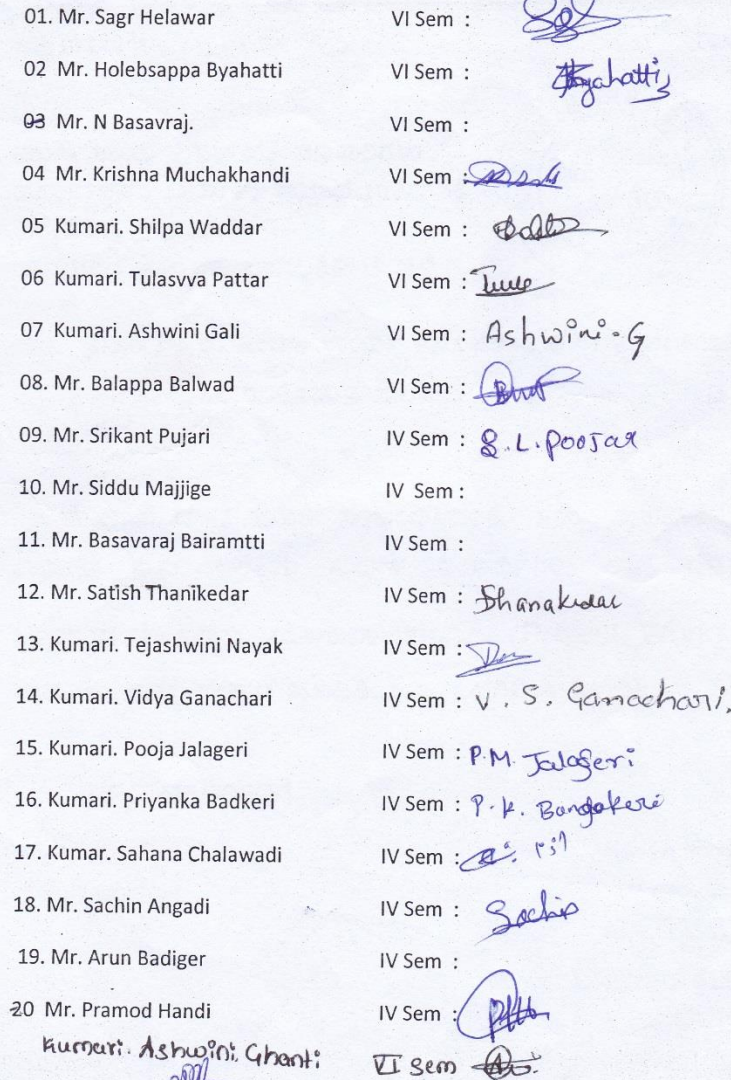 01. Mr. Sagr Helawar VI Sem :
02 Mr. Holebsappa Byahatti VI Sem : Byahatti
03 Mr. N Basavraj. VI Sem :
04 Mr. Krishna Muchakhandi VI Sem :
05 Kumari. Shilpa Waddar VI Sem :
06 Kumari. Tulasvva Pattar VI Sem :
07 Kumari. Ashwini Gali VI Sem : Ashwini-G
08. Mr. Balappa Balwad VI Sem :
09. Mr. Srikant Pujari IV Sem : S.L.Poojar
10. Mr. Siddu Majjige IV Sem :
11. Mr. Basavaraj Bairamtti IV Sem :
12. Mr. Satish Thanikedar IV Sem :
13. Kumari. Tejashwini Nayak IV Sem :
14. Kumari. Vidya Ganachari IV Sem : V. S. Ganachari.
15. Kumari. Pooja Jalageri IV Sem : P.M. Jalageri
16. Kumari. Priyanka Badkeri IV Sem : P. K.
17. Kumar. Sahana Chalawadi IV Sem :
18. Mr. Sachin Angadi IV Sem : Sachin
19. Mr. Arun Badiger IV Sem :
20 Mr. Pramod Handi IV Sem :
Kumari. Ashwini. Ghanti VI Sem